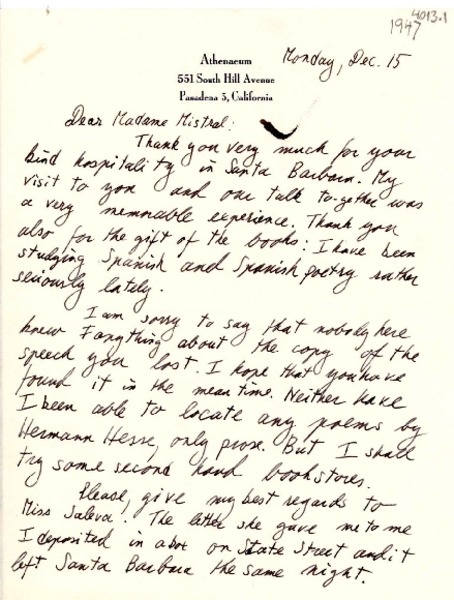 4013.1
1947
Athenaeum
551 South Hill Avenue
Pasadena 5, California
Monday, Dec. 15
Dear Madame Mistral:
Thank you very much for your
kind hospitality in Santa Barbara. My
visit to you and our talk together was
a very memorable experience. Thank you
also for the gift of the books: I have been
studying Spanish and Spanish poetry rather
seriously lately.
I am sorry to say that nobody here
knew anything about the copy of the
speech you lost. I hope that you have
found it in the mean time. Neither have
I been able to locate any poems by
Hermann Hesse, only prose. But I shall
try some second hand bookstores.
Please, give my best regards to
Miss Saleva. The letter she gave me to me
I deposited in a box on State Street and it
left Santa Barbara the same night.